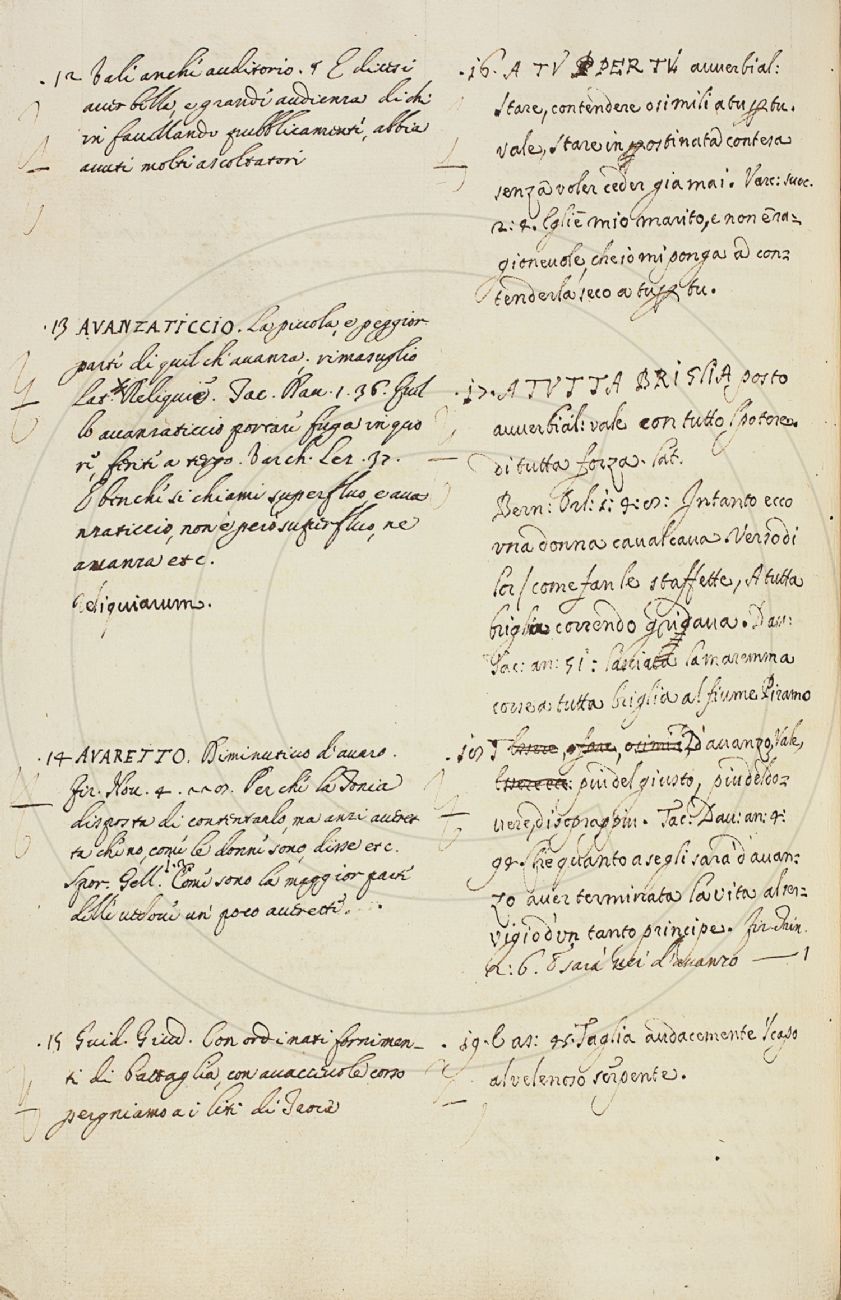 .12 Vale anche auditorio. ¶ E dicesi
aver belle, e grandi audienza di chi
in favellando pubblicamente, abbia
avuti molti ascoltatori
.13 AVANZATICCIO. La piccola, e peggior
parte di quel ch'avanza, rimasuglio
Lat. Reliquie. Tac. Dav. 1. 36.
lo avanzaticcio portare fuga in quo
re, ferite a tergo. Varch. Lez. 37.
E benchè si chiami superfluo, e ava
nzaticcio, non è però superfluo, ne
avanza etc.
Reliquiarum.
.14 AVARETTO. Diminutivo d'avaro.
fir. Nov. 4. Perchè la Tonia
disposta di contentarlo, ma anzi avaret
ta chi no, come le donne sono, disse etc.
Spor. Gell. 1.3. Come sono la maggior parte
delli uedove un poco avarette.
.15 Guid. Giud. Con ordinati fornimen_
ti di battaglia, con avaccevole corso
pergniamo a i liti di Troia
.16. A TV PPER TU avverbial:
Stare, contendere o simili a tu per tu.
vale, Stare in ostinata contesa
senza voler ceder giamai. Varc: suoc.
2: 4. Egli è mio marito, e non è ra=
gionevole, che io mi ponga a con=
tenderla seco a tu per tu.
.17. A TVTTA BRIGLIA posto
avverbial: vale con tutto l potere.
di tutta forza. Lat.
Bern: Orl: 1: 4: Intanto ecco
una donna cavalcava. Verso di
lor / come fan le staffette, A tutta
briglia correndo Gridava. Dav:
Tac: an: 51: lasciata la maremma
corse a tutta briglia al fiume Piramo
d'avanzo, Vale,
più del giusto, più del do=
vere, di soprappiù. Tac: Dav: an: 4:
94. Che quanto a se gli sarà d'avan=
zo aver terminata la vita al ser=
vigio d'un tanto principe. fir. Trin.
2: 6. E sarà d'avanzo — 1
.19. Cas: 45. Taglia audacemente 'l capo
al velenoso serpente.